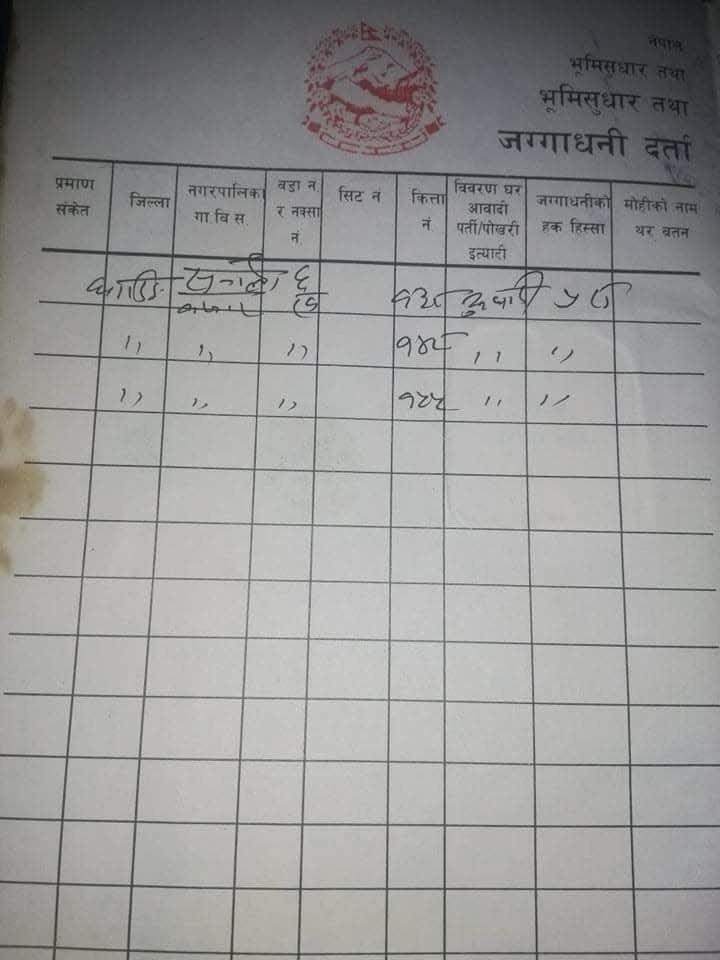 नेपाल
भूमिसुधार तथा
भूमिसुधार तथा
जग्गाधनी दर्ता
प्रमाण संकेत जिल्ला नगरपालिका गा वि स. वडा न. र नक्सा नं. सिट नं कित्ता नं. विवरण घर आवादी पर्ती/पोखरी इत्यादी जग्गाधनीको हक हिस्सा मोहीको नाम थर वतन
धादिङ ६
,, ,, ,, ,, ,,
,, ,, ,, ,, ,,